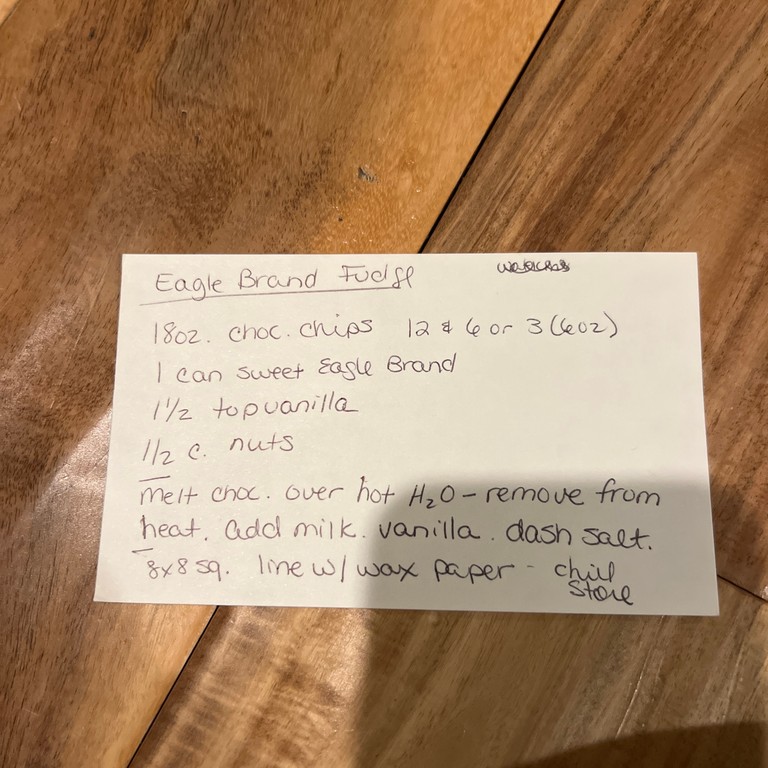 Eagle Brand Fudge
18oz. choc. chips 12 & 6 or 3 (6oz)
1 can sweet Eagle Brand
1 1/2 tsp vanilla
1/2 c. nuts
melt choc. over hot H₂O - remove from
heat. add milk. vanilla. dash salt.
8x8 sq. line w/ wax paper - chill
store